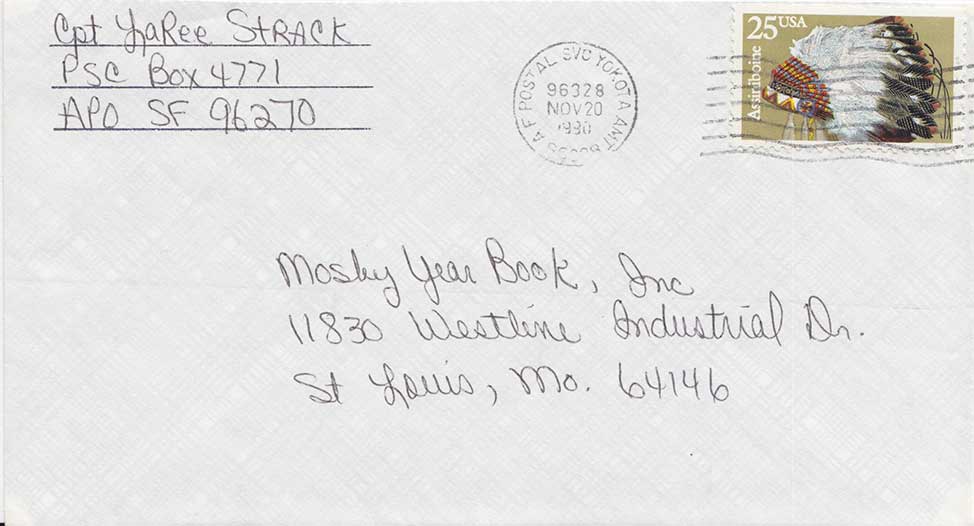 Cpt LaRee STRACK
PSC Box 4771
APO SF 96270
A F POSTAL SVC YOKOTA AMT
96328
NOV 20
1990
25 USA
Assiniboine
Mosby Year Book, Inc
11830 Westline Industrial Dr.
St Louis, Mo. 64146